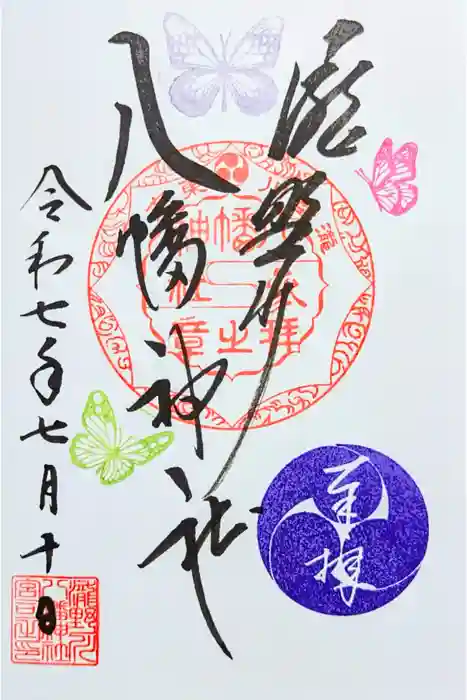 奉拝
瀧野川
八幡神社
令和七年七月十日
瀧野川
八幡神社
宮司之印